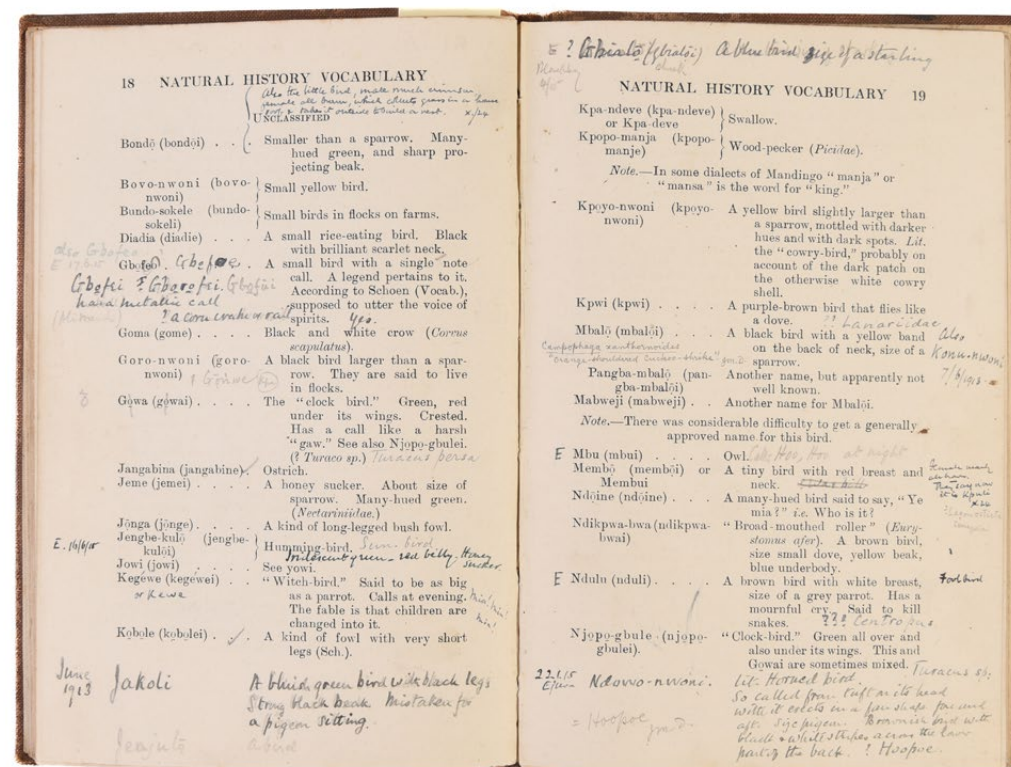 18 NATURAL HISTORY VOCABULARY
Also the little bird, male much crimson
female all brown, which collects grass in a house
roof & takes it outside to build a nest. X/24
UNCLASSIFIED
Bondọ̄ (bondọ̄i) . . Smaller than a sparrow. Many-
hued green, and sharp pro-
jecting beak.
Bovo-nwoni (bovo- Small yellow bird.
nwoni)
Bundo-sokele (bundo- Small birds in flocks on farms.
sokeli)
Diadia (diadie) . . . A small rice-eating bird. Black
with brilliant scarlet neck.
also Gbofeo
Gbofeo. Gbefọe. A small bird with a single note
Gbofei ? Gborofei. Gbofūi call. A legend pertains to it.
hard metallic call According to Schoen (Vocab.),
? a corncrake or rail supposed to utter the voice of
spirits. Yes.
Goma (gome) . . . . Black and white crow (Corvus
scapulatus).
Goro-nwoni (goro- A black bird larger than a spar-
nwoni) row. They are said to live
in flocks.
Gọwa (gọwai) . . . . The "clock bird." Green, red
under its wings. Crested.
Has a call like a harsh
"gaw." See also Njọpọ-gbulei.
(? Turaco sp.) Turacus persa
Jangabina (jangabine) Ostrich.
Jeme (jemei) . . . . A honey sucker. About size of
sparrow. Many-hued green.
(Nectariniidae.)
Jọnga (jọnge) . . . . A kind of long-legged bush fowl.
E. 16/6/15 Jengbe-kulọ (jengbe- Humming-bird. Sun-bird
kulọi) Iridescent green - red belly. Honey sucker.
Jowi (jowi) . . . . . See yowi.
Kegéwe (kegéwei) . . "Witch-bird." Said to be as big
or Kewe as a parrot. Calls at evening.
The fable is that children are
changed into it.
Kọbọle (kọbọlei) . . A kind of fowl with very short
legs (Sch.).
June 1913 Jakoli A bluish green bird with black legs
Strong black beak. Mistaken for
a pigeon sitting.
E ? Gbialọ̄ (gbialọ̄i) A blue bird size of a starling
NATURAL HISTORY VOCABULARY 19
Kpa-ndeve (kpa-ndeve) Swallow.
or Kpa-deve
Kpopo-manja (kpopo- Wood-pecker (Picidae).
manje)
Note.—In some dialects of Mandingo "manja" or
"mansa" is the word for "king."
Kpọyọ-nwoni (kpọyọ- A yellow bird slightly larger than
nwoni) a sparrow, mottled with darker
hues and with dark spots. Lit.
the "cowry-bird," probably on
account of the dark patch on
the otherwise white cowry
shell.
Kpwi (kpwi) . . . . A purple-brown bird that flies like
a dove. ?? Lanariidae
Mbalọ (mbalọi) . . . A black bird with a yellow band Also
Campophaga xanthornoides on the back of neck, size of a Konu-nwoni
"Orange-shouldered Cuckoo-shrike" sparrow. 7/6/1915
Pangba-mbalọ (pan- Another name, but apparently not
gba-mbalọi) well known.
Mabweji (mabweji) . . Another name for Mbalọi.
Note.—There was considerable difficulty to get a generally
approved name for this bird.
E Mbu (mbui) . . . . Owl. Calls Hoo, Hoo at night
Membọ̄ (membọ̄i) or A tiny bird with red breast and
Membui neck.
Ndọ̄ine (ndọ̄ine) . . . A many-hued bird said to say, "Ye
mia?" i.e. Who is it?
Ndikpwa-bwa (ndikpwa- "Broad-mouthed roller" (Eury-
bwai) stomus afer). A brown bird,
size small dove, yellow beak,
blue underbody.
E Ndulu (nduli) . . . . A brown bird with white breast,
size of a grey parrot. Has a
mournful cry. Said to kill
snakes. ??? Centropus
Njọpọ-gbule (njọpọ- "Clock-bird." Green all over and
gbulei). also under its wings. This and
Gowai are sometimes mixed. Turacus sp.
22.1.15 Ndowo-nwoni. Lit. Horned bird.
So called from tuft on its head
with it erects in a fan shape fore and
aft. Size pigeon. Brownish bird with
black & white stripes across the lower
= Hoopoe part of the back. ? Hoopoe.